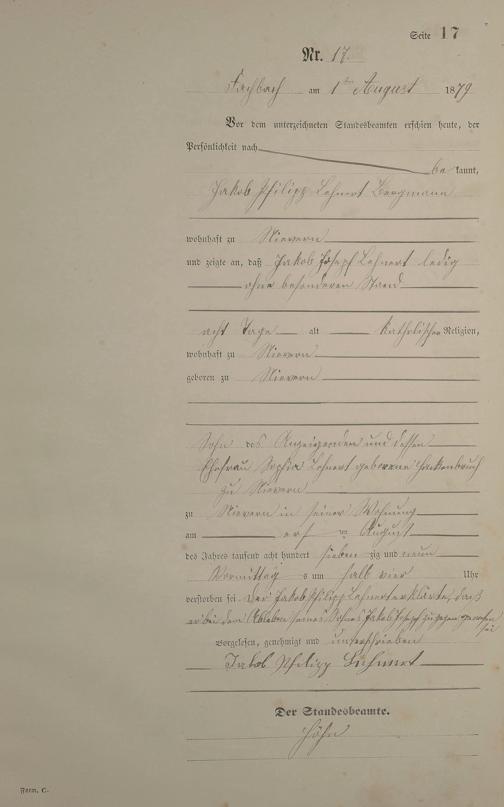 Seite 17
Nr. 17.
Fachbach am 1ten August 1879
Vor dem unterzeichneten Standesbeamten erschien heute, der
Persönlichkeit nach
be kannt,
Jakob Philipp Lehnert Bergmann
wohnhaft zu Nievern
und zeigte an, daß Jakob Josepf Lehnert ledig
ohne besonderen Stand
acht Tage alt katholischer Religion,
wohnhaft zu Nievern
geboren zu Nievern
Sohn des Anzeigenden und dessen
Ehefrau Sophia Lehnert geborene
zu Nievern
zu Nievern in seiner Wohnung
am ersten August
des Jahres tausend acht hundert sieben zig und neun
Vormittag s um halb vier Uhr
verstorben sei. Der Jakob Philipp Lehnert erklärte, daß
er bei dem Ableben seines Sohnes Jakob Josepf zugegen gewesen
sei
Vorgelesen, genehmigt und unterschrieben
Jakob Philipp Lehnert
Der Standesbeamte.
Höhn
Form. C.